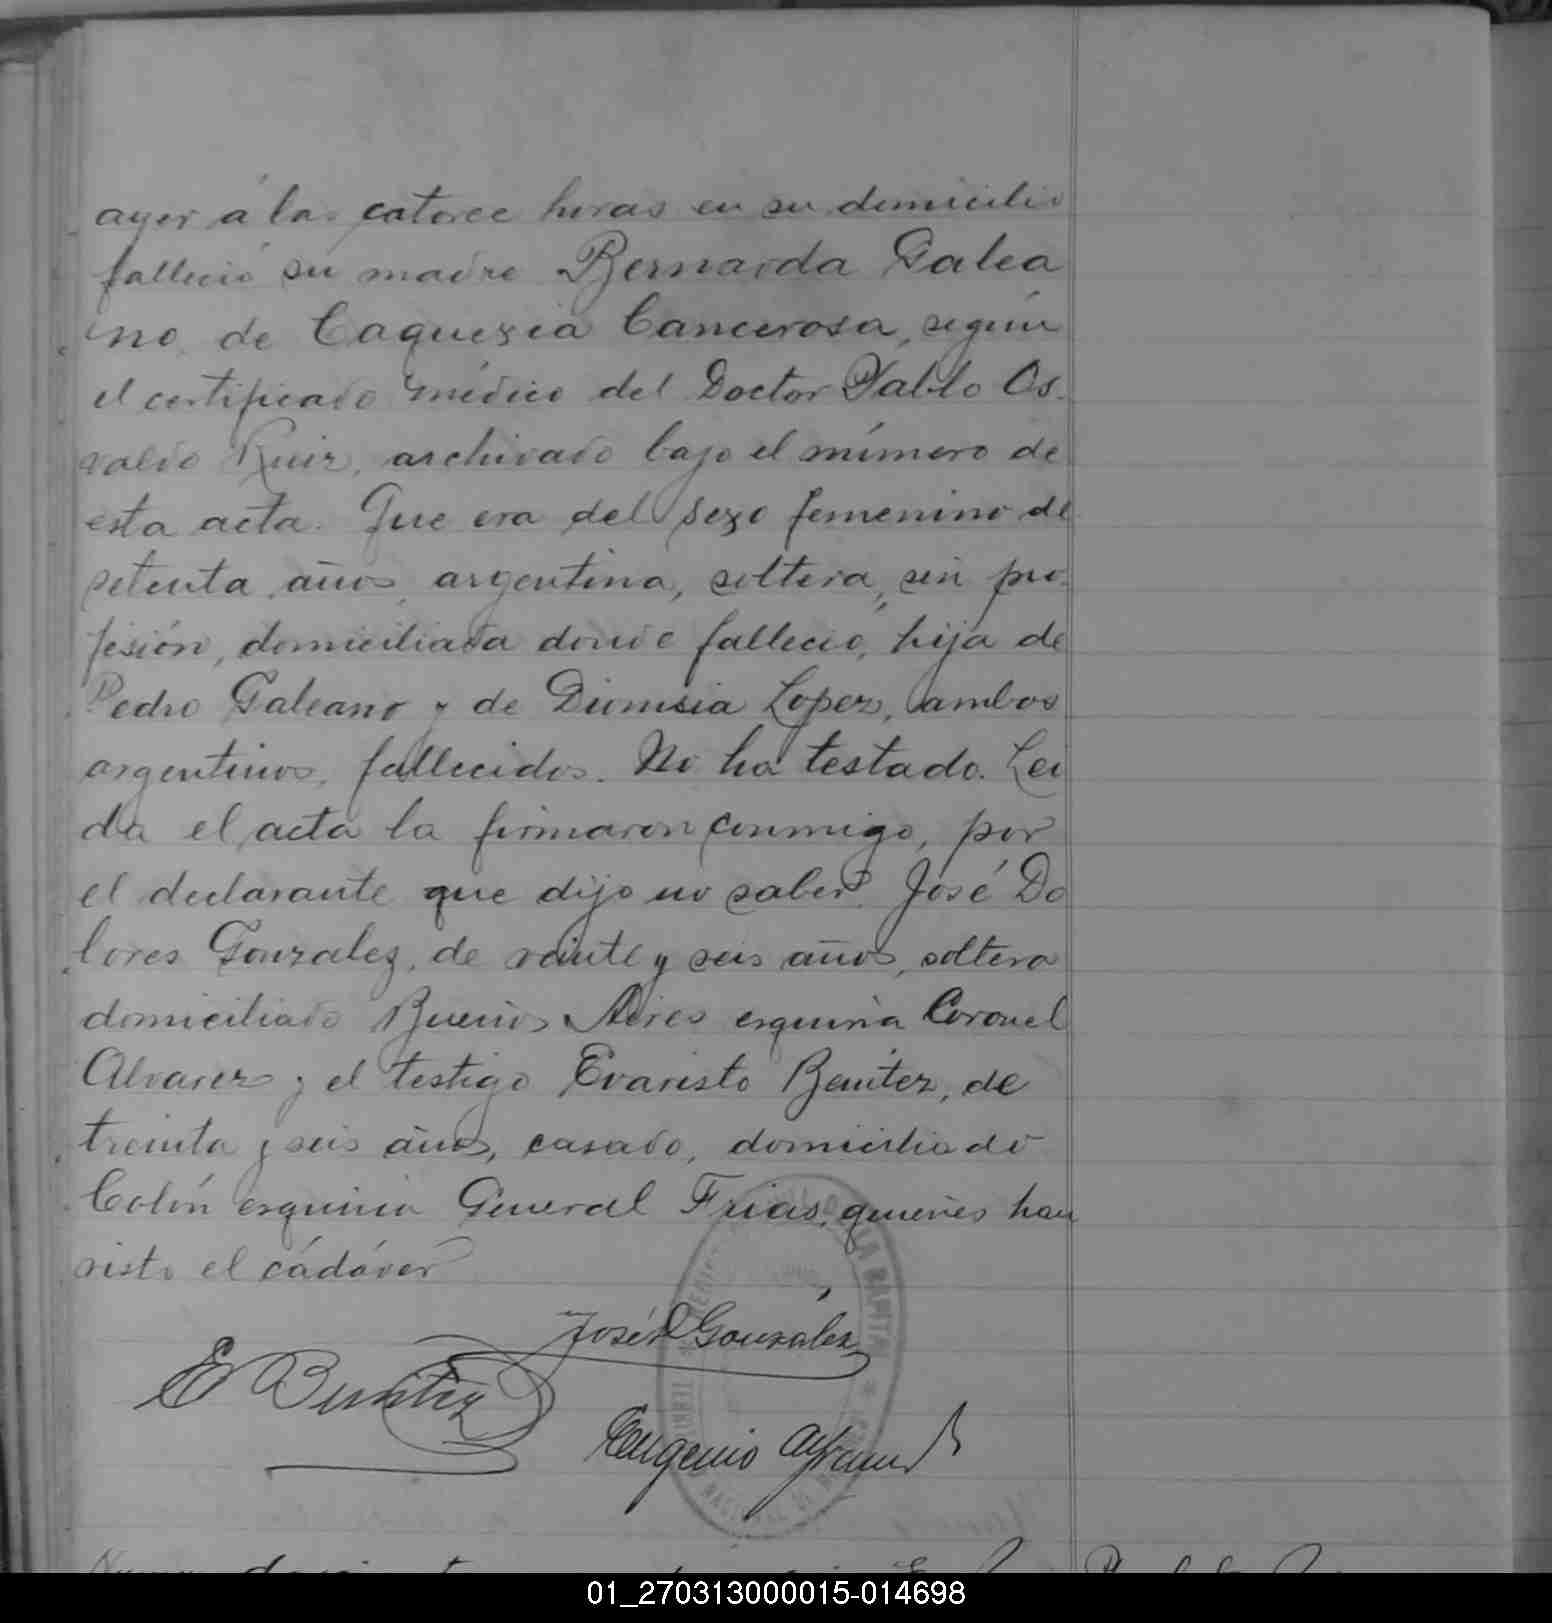 ayer á las catorce horas en su domicilio
falleció su madre Bernarda Galea
no, de Caquexia Cancerosa, según
el certificado médico del Doctor Pablo Os-
valdo Ruiz, archivado bajo el número de
esta acta. Que era del sexo femenino de
setenta años, argentina, soltera, sin pro-
fesión, domiciliada donde falleció, hija de
Pedro Galeano y de Dionisia Lopez, ambos
argentinos, fallecidos. No ha testado. Lei
da el acta la firmaron conmigo, por
el declarante que dijo no saber José Do
lores Gonzalez, de veinte y seis años, soltero
domiciliado Buenos Aires esquina Coronel
Alvarez y el testigo Evaristo Benitez, de
treinta y seis años, casado, domiciliado
Colón esquina General Frias, quienes han
visto el cádáver
José D González
E Benitez
Eugenio
01_270313000015-014698